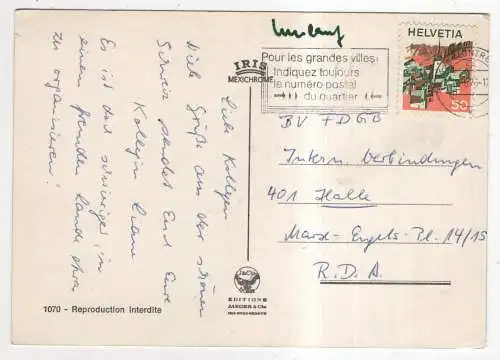 Umlauf
HELVETIA
50
IRIS
MEXICHROME
Pour les grandes villes:
Indiquez toujours
le numéro postal
du quartier
Liebe Kollegen
Viele Grüße aus der schönen
Schweiz sendet Euch Eure
Kollegin
Es ist doch schwierig, in
einem fremden Lande etwas
zu organisieren!
BV FDGB
Intern. Verbindungen
401 Halle
Marx-Engels-Pl. 14/15
R.D.A.
EDITIONS
JAEGER & Cie
1070 - Reproduction Interdite